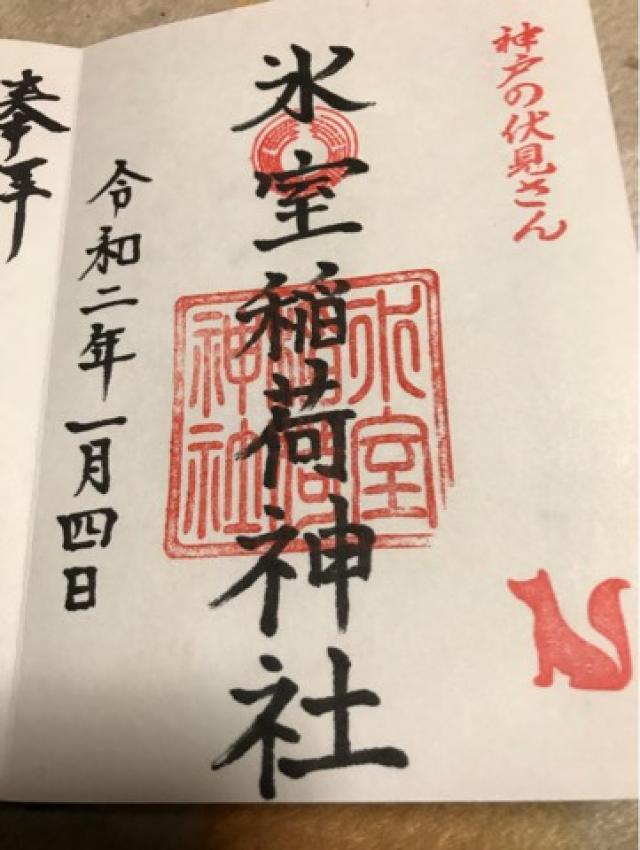 神戸の伏見さん
氷室稲荷神社
氷室
稲荷
神社
令和二年一月四日
奉拝